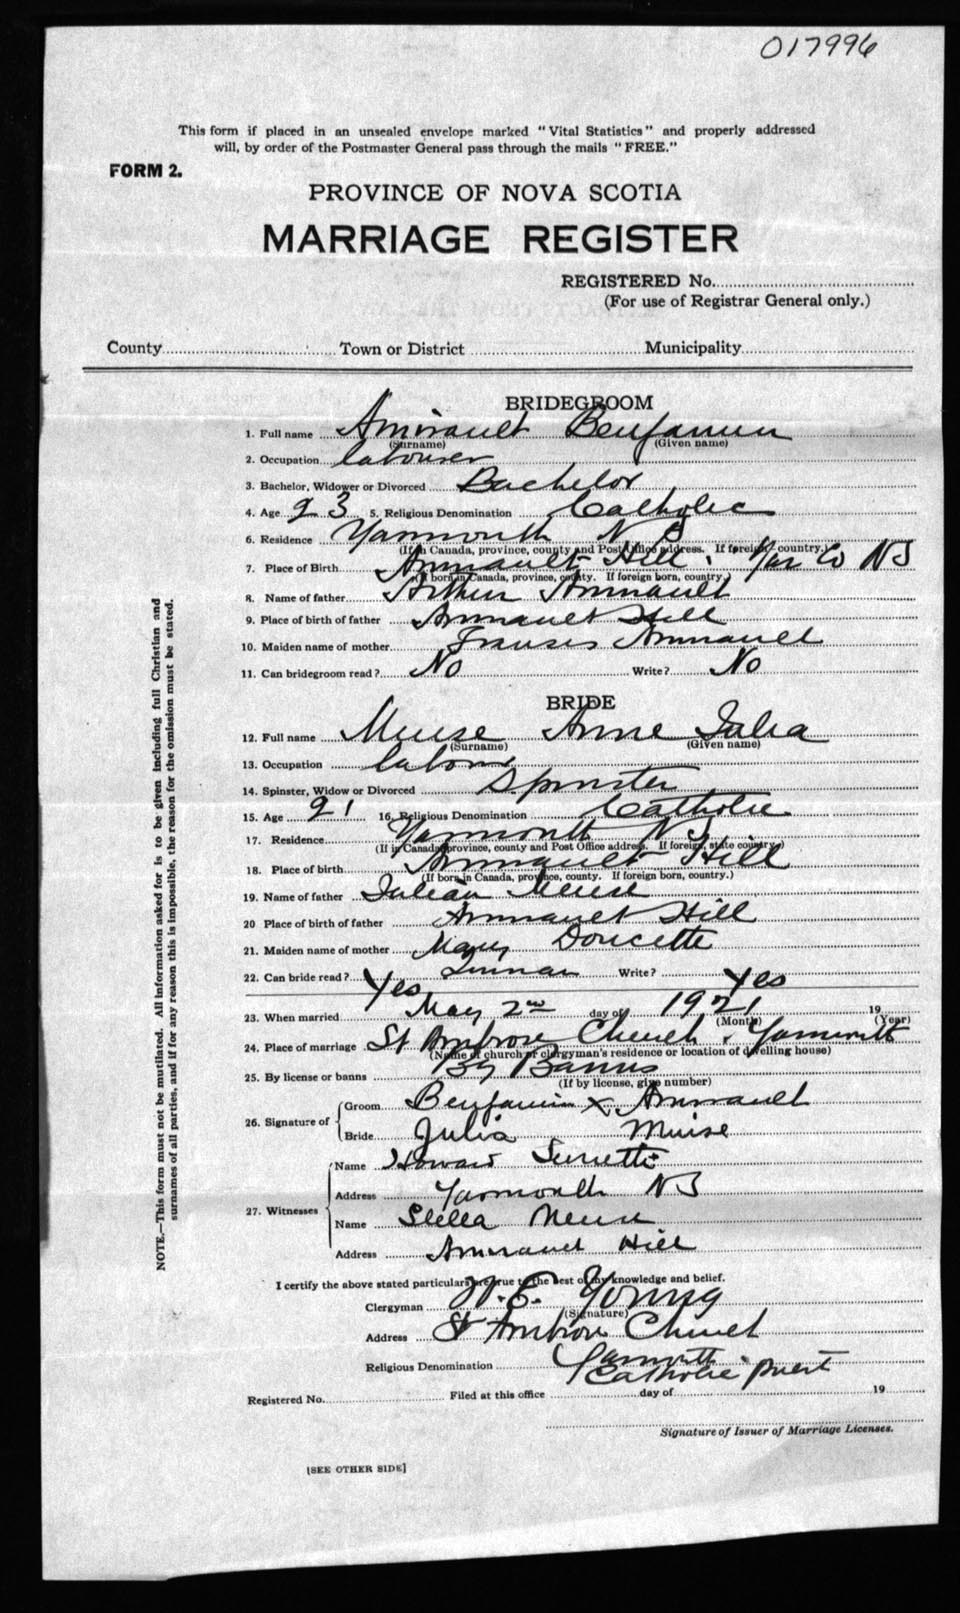 017996
This form if placed in an unsealed envelope marked "Vital Statistics" and properly addressed
will, by order of the Postmaster General pass through the mails "FREE."
FORM 2.
PROVINCE OF NOVA SCOTIA
MARRIAGE REGISTER
REGISTERED No.
(For use of Registrar General only.)
County Town or District Municipality
BRIDEGROOM
1. Full name Amirault Benjamin
(Surname) (Given name)
2. Occupation labourer
3. Bachelor, Widower or Divorced Bachelor
4. Age 23 5. Religious Denomination Catholic
6. Residence Yarmouth N S
(If in Canada, province, county and Post Office address. If foreign country.)
7. Place of Birth Amirault Hill. Yar Co NS
(If born in Canada, province, county. If foreign born, country.)
8. Name of father Arthur Amirault
9. Place of birth of father Amirault Hill
10. Maiden name of mother Frances Amirault
11. Can bridegroom read? No Write? No
BRIDE
12. Full name Muise Anne Julia
(Surname) (Given name)
13. Occupation labour
14. Spinster, Widow or Divorced Spinster
15. Age 21 16. Religious Denomination Catholic
17. Residence Yarmouth N S
(If in Canada province, county and Post Office address. If foreign, state country)
18. Place of birth Amirault Hill
(If born in Canada, province, country. If foreign born, country.)
19. Name of father Julian Meuse
20 Place of birth of father Amirault Hill
21. Maiden name of mother Mary Doucette
22. Can bride read? Yes Write? Yes
23. When married May 2nd day of 1921 19
(Month) (Year)
24. Place of marriage St Ambrose Church. Yarmouth
(Name of church or clergyman's residence or location of dwelling house)
25. By license or banns By Banns
(If by license, give number)
26. Signature of Groom Benjamin x Amirault
Bride Julia Muise
27. Witnesses Name Howard Surrette
Address Yarmouth NS
Name Stella Meuse
Address Amirault Hill
I certify the above stated particulars are true to the best of my knowledge and belief.
Clergyman W. E. Young
(Signature)
Address St Ambrose Church
Yarmouth
Religious Denomination Catholic priest
Registered No. Filed at this office day of 19
Signature of Issuer of Marriage Licenses.
[SEE OTHER SIDE]
NOTE.—This form must not be mutilated. All information asked for is to be given including full Christian and
surnames of all parties, and if for any reason this is impossible, the reason for the omission must be stated.